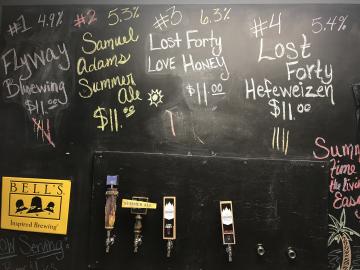 #1 4.9%
Flyway
Bluewing
$11.00
#2 5.3%
Samuel
Adams
Summer
Ale
$11.00
#3 6.3%
Lost Forty
LOVE HONEY
$11.00
#4 5.4%
Lost
Forty
Hefeweizen
$11.00
Summer
time
the livin
Easy
BELL'S
Inspired Brewing
Now Serving:
SUMMER ALE